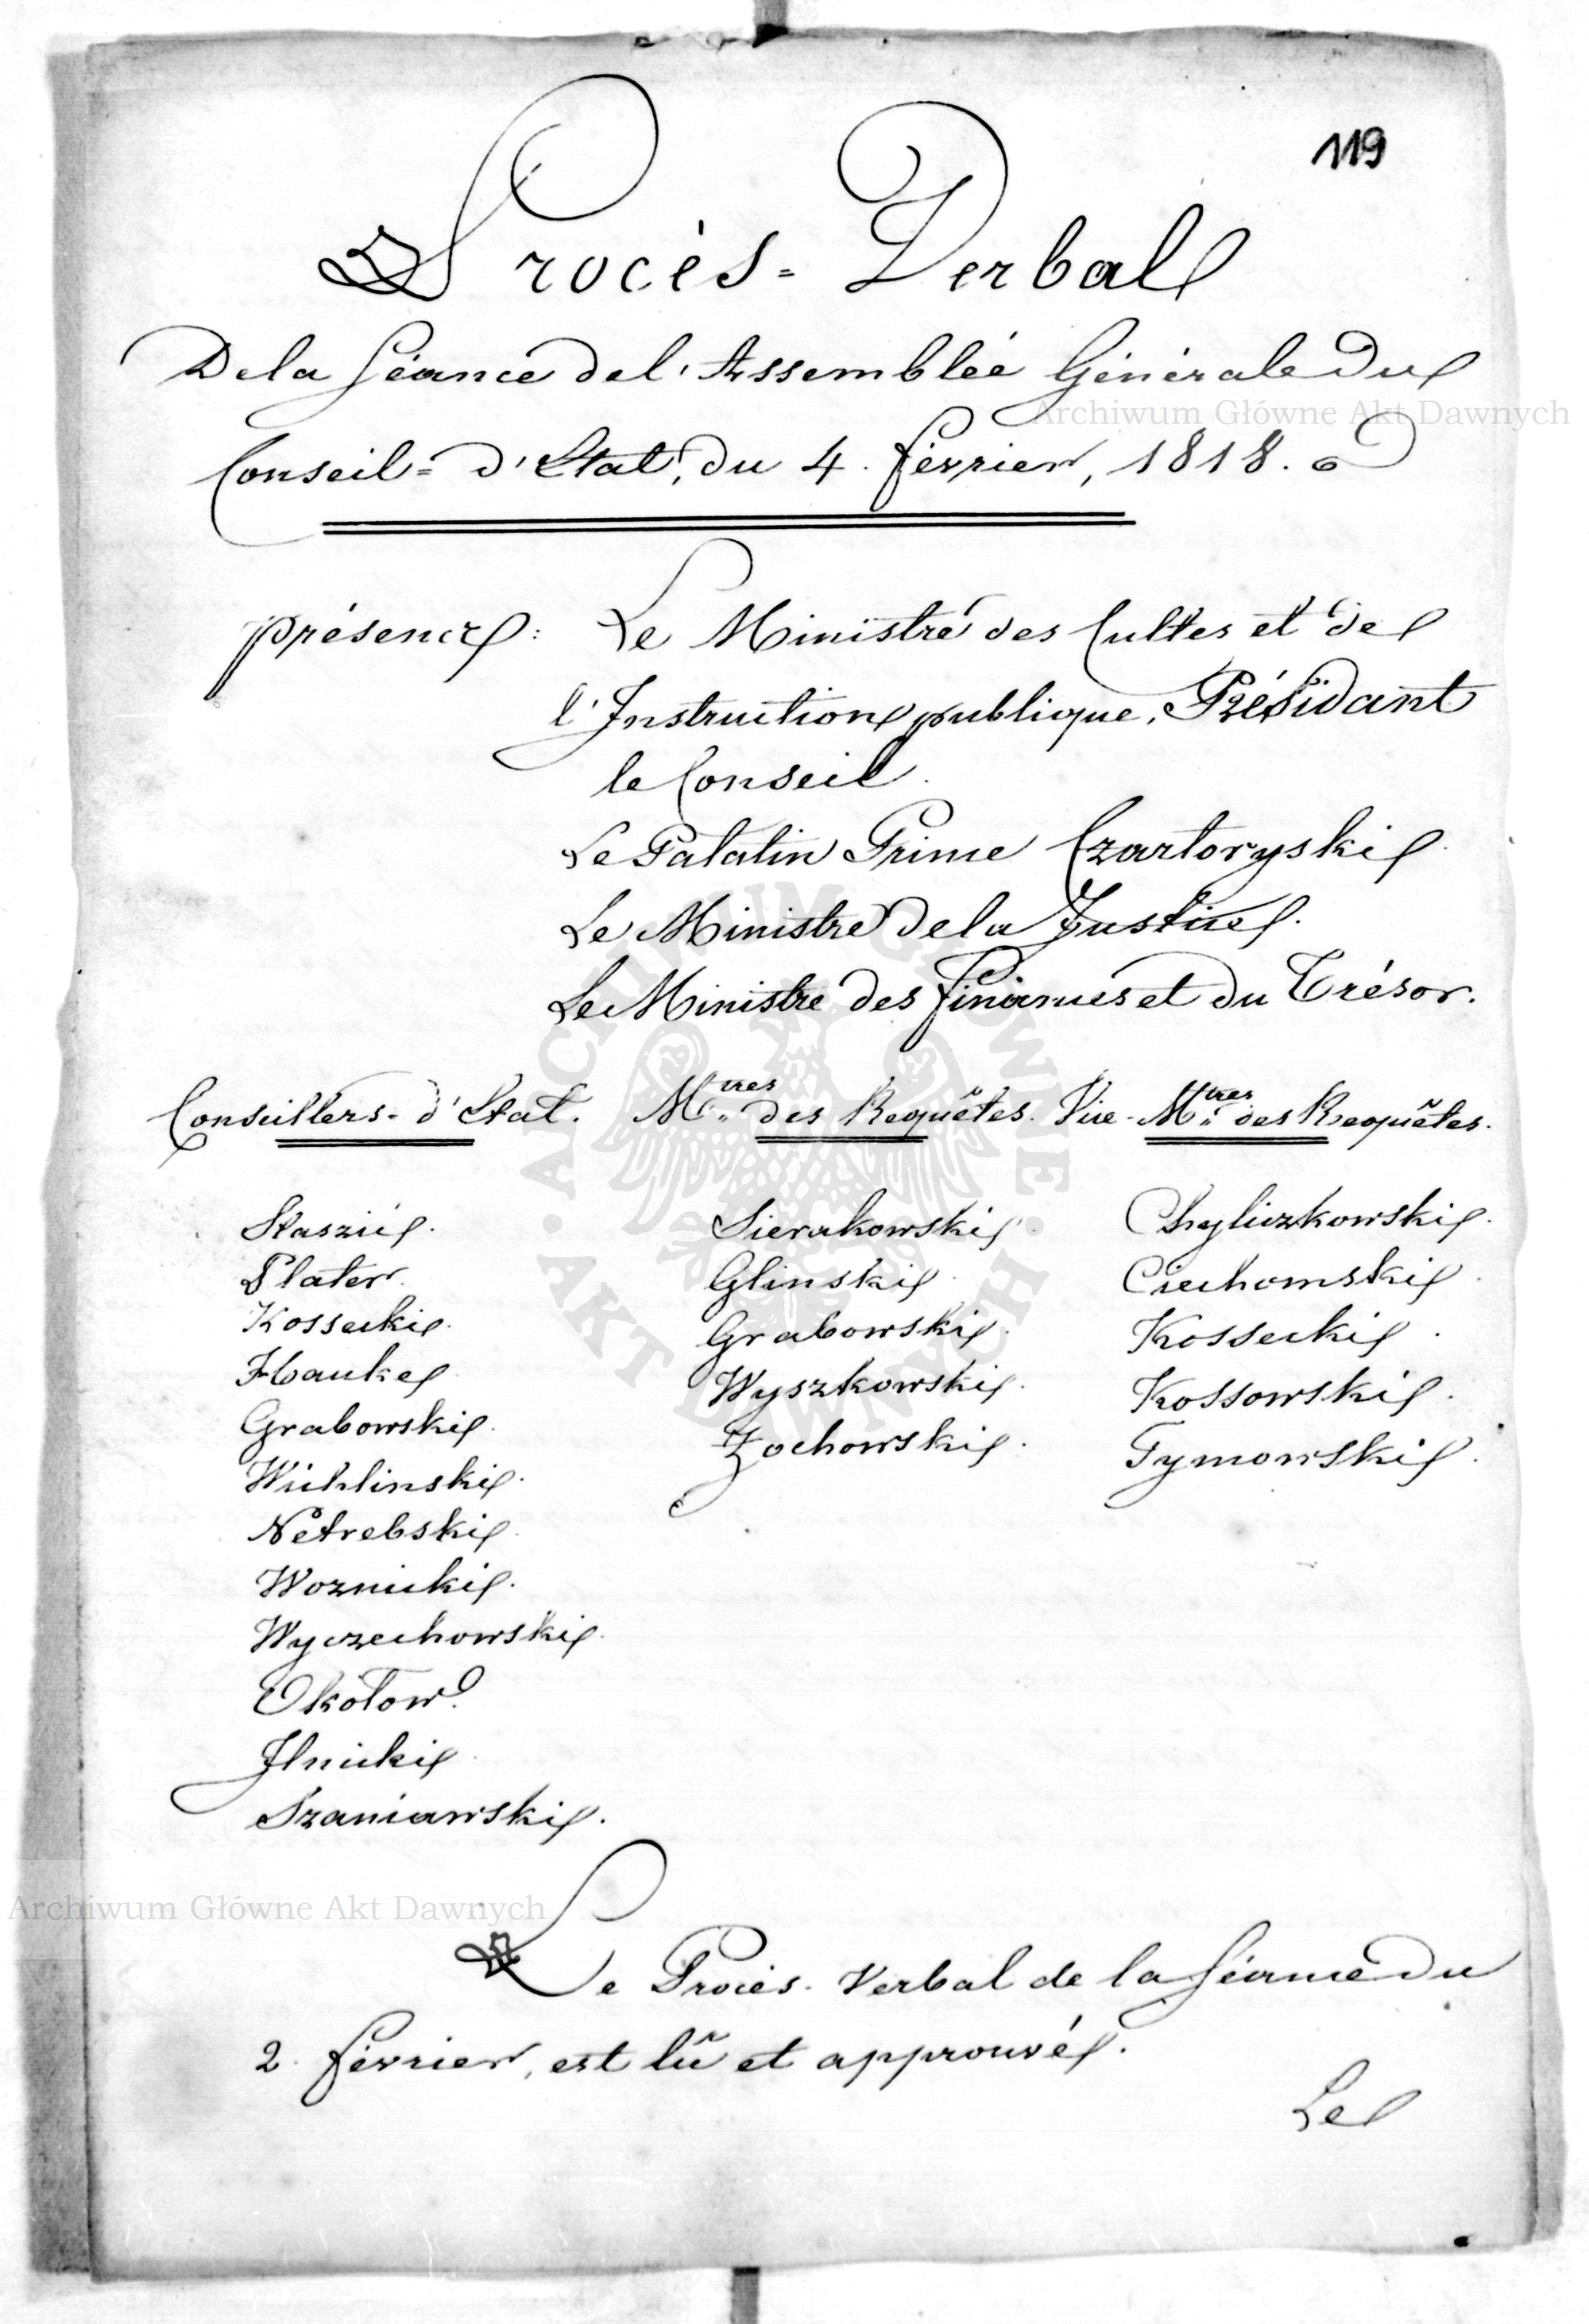 119
Procès=Verbal
De la Séance de l'Assemblée Générale du
Conseil=d'Etat, du 4. février, 1818.
présence:
Le Ministre des Cultes et de
l'Instruction publique, Présidant
le Conseil.
Le Palatin Prince Czartoryski.
Le Ministre de la Justice.
Le Ministre des finances et du Trésor.
Conseillers-d'Etat. Mtres des Requêtes. Vice-Mtres des Requêtes.
Staszic.
Plater.
Kossecki.
Hauke.
Grabowski.
Wichlinski.
Netrebski.
Woznicki.
Wyczechowski.
Okołow.
Ilnicki.
Szaniawski.
Sierakowski.
Glinski.
Grabowski.
Wyszkowski.
Żochowski.
Chyliczkowski.
Ciechomski.
Kossecki.
Kossowski.
Tymowski.
Le Procès-Verbal de la Séance du
2. février, est lû et approuvé.
Le
Archiwum Główne Akt Dawnych
Archiwum Główne Akt Dawnych
ARCHIWUM GŁÓWNE · AKT DAWNYCH ·